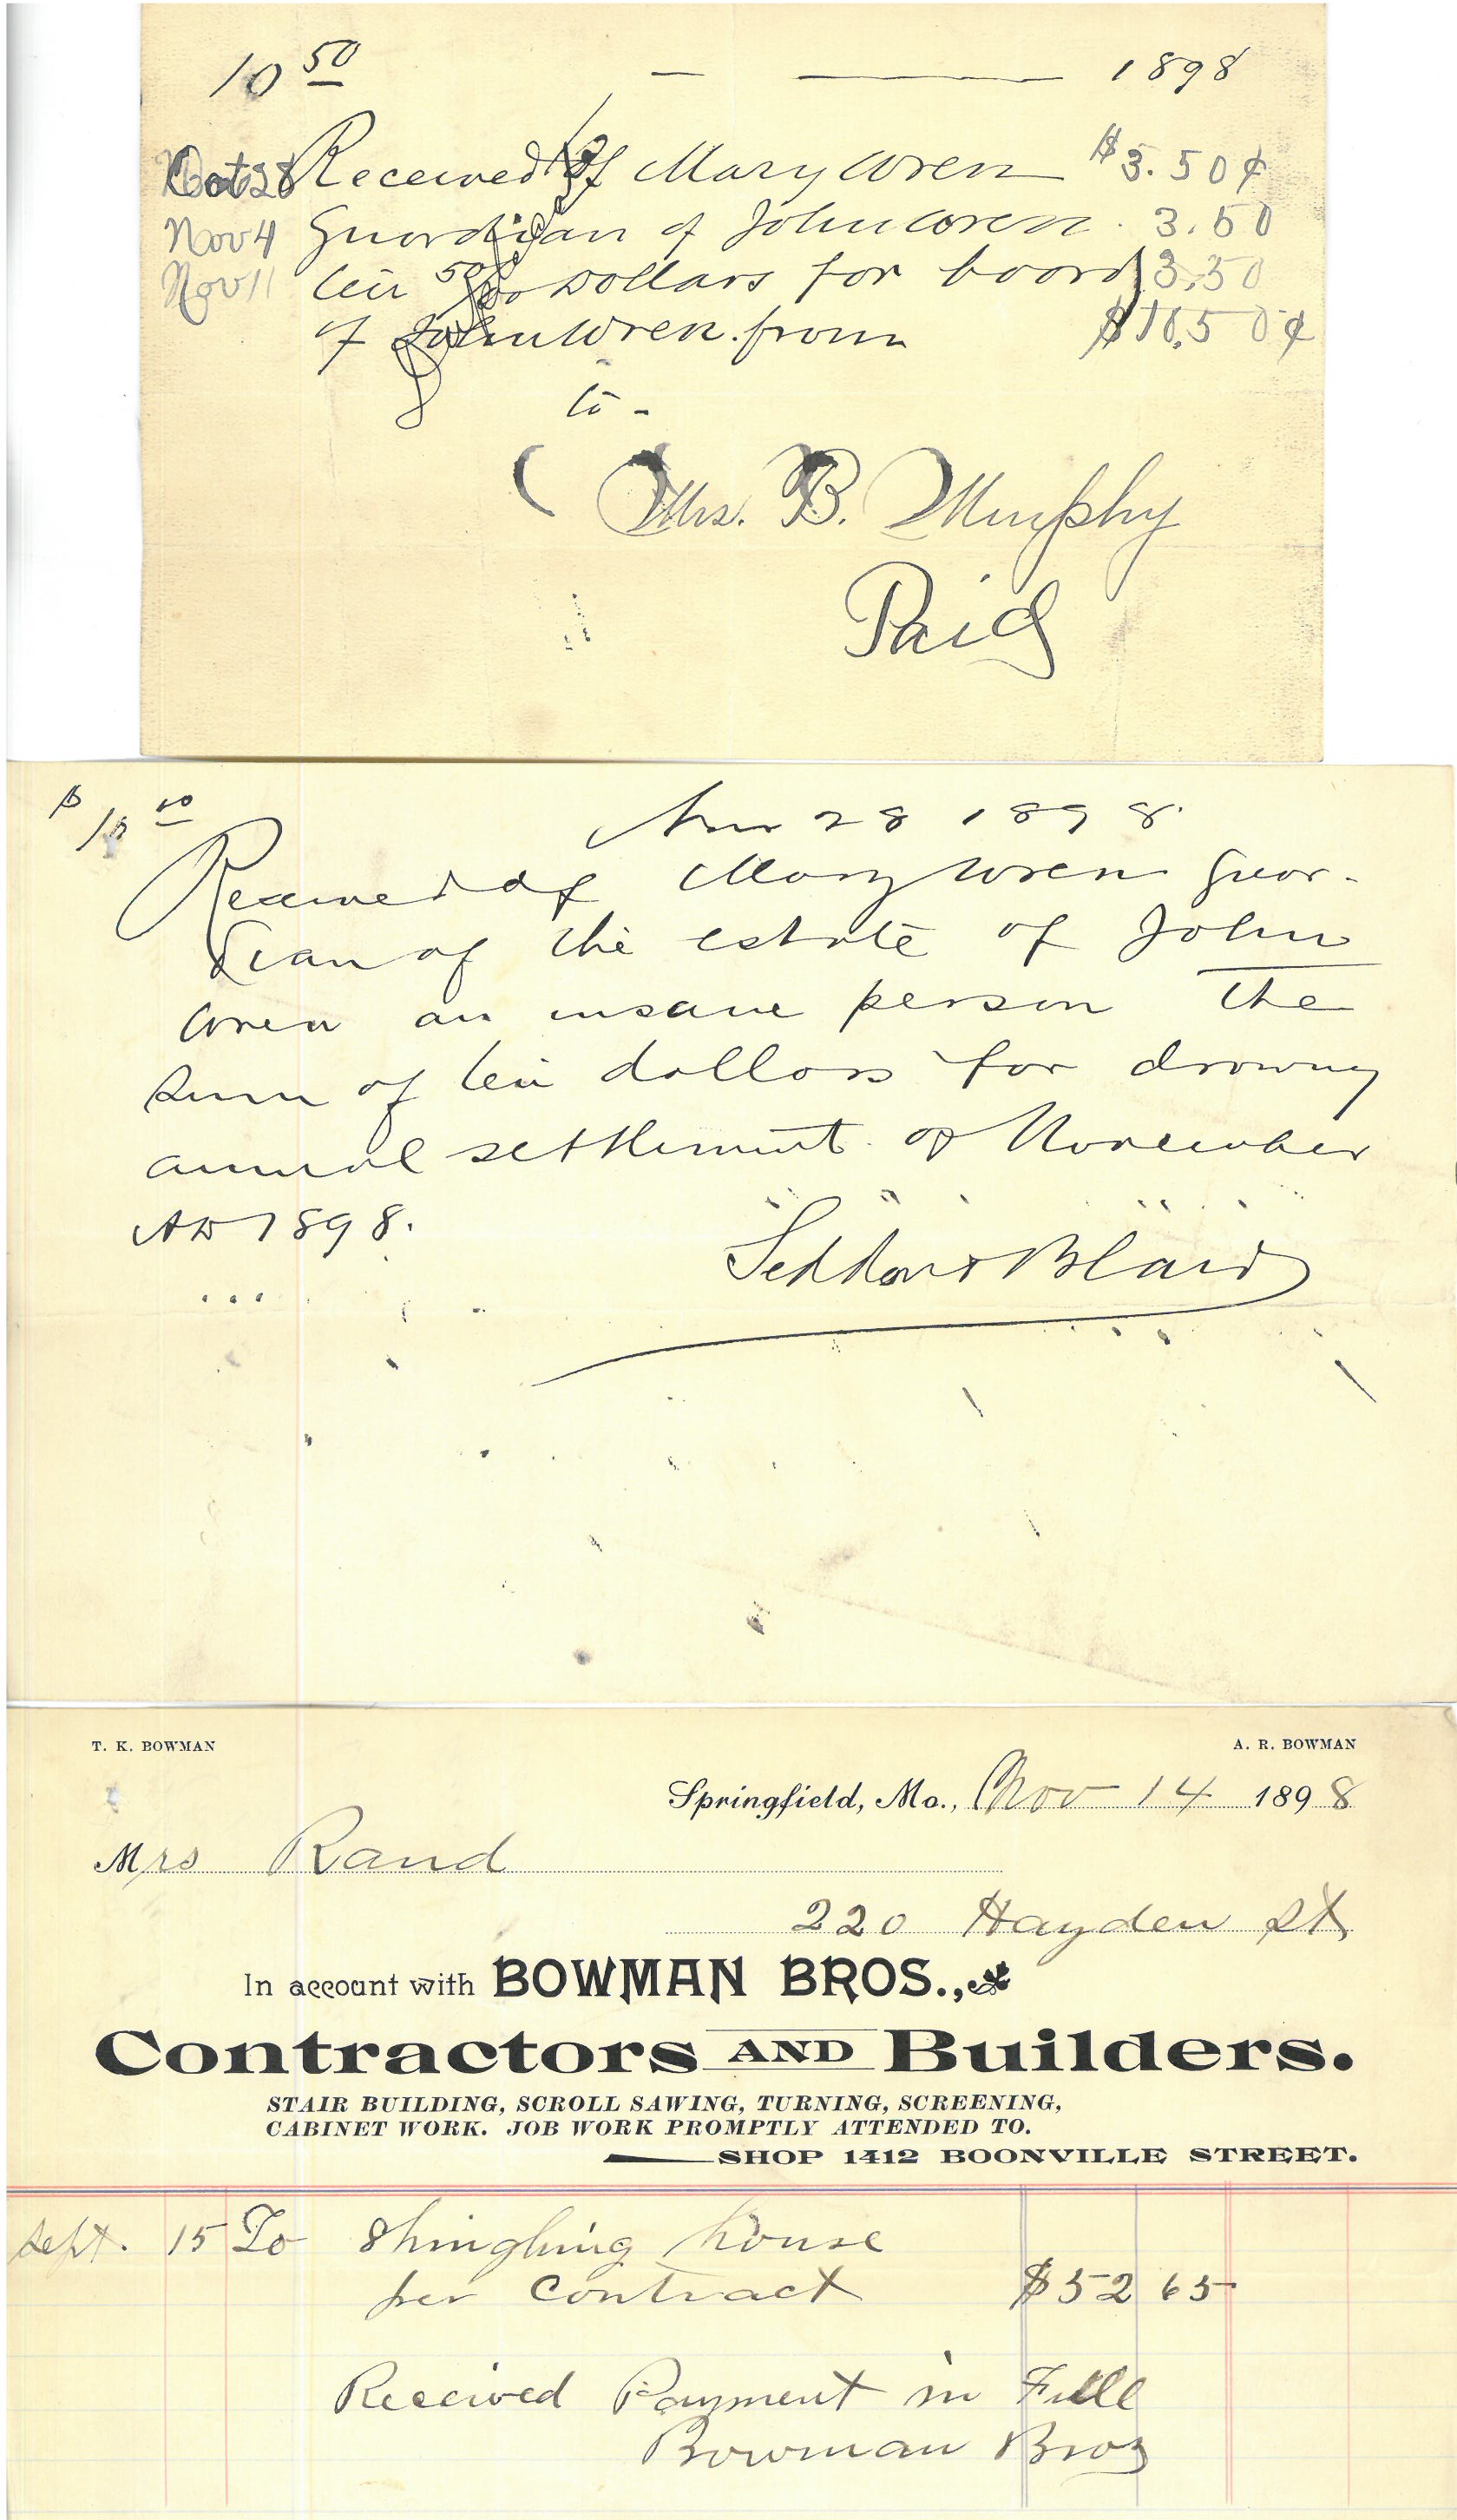 10 50 — — 1898
Oct 28 Received of Mary Wren $3.50¢
Nov 4 Guardian of John Wren. 3.50
Nov 11 ten 50/100 Dollars for board 3.50
of John Wren. from $10.50¢
to -
Mrs. B. Murphy
Paid
$ 10 00
Nov 28 1898.
Received of Mary Wren Guar-
dian of the estate of John
Wren an insane person the
sum of ten dollars for drawing
annual settlement of November
AD 1898.
& Blair
T. K. BOWMAN A. R. BOWMAN
Springfield, Mo., Nov 14 1898
Mrs Rand
220 Hayden St
In account with BOWMAN BROS.,
Contractors AND Builders.
STAIR BUILDING, SCROLL SAWING, TURNING, SCREENING,
CABINET WORK. JOB WORK PROMPTLY ATTENDED TO.
SHOP 1412 BOONVILLE STREET.
Sept. 15 To Shingling house
per Contract $52 65
Received Payment in Full
Bowman Bros